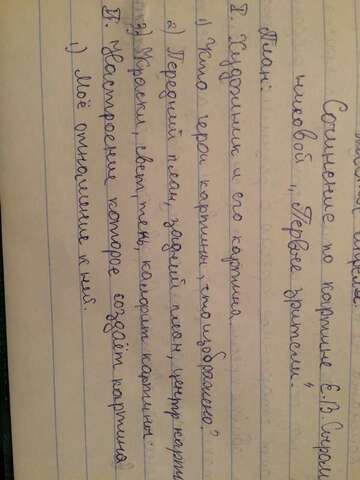 Сочинение по картине Е.В Сыром
никовой „Первые зрители".
План:
I. Художник и его картина
1) Кто герои картины, что изображено?
2) Передний план, задний план, центр карти
3) Краски, свет, тень, колорит картины.
II. Настроение которое создаёт картина
1) Моё отношение к ней.